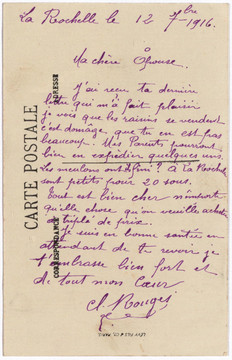 La Rochelle le 12 7bre 1916.
Ma chère Épouse.
J'ai reçu ta dernière
lettre qui m'a fait plaisir
je vois que les raisins se vendent
c'est domage, que tu en est pas
beaucoup. Mes Parents pourront
bien en expédier quelques uns.
Les melons ont fini? à La Rochelle
sont petits pour 20 sous.
Tout est bien cher n'importe
quelle chose qu'on veuille acheter
a triplé de prix.
Je suis en bonne santée en
attendant de te revoir je
t'embrasse bien fort et
de tout mon Cœur
CARTE POSTALE
CORRESPONDANCE
ADRESSE